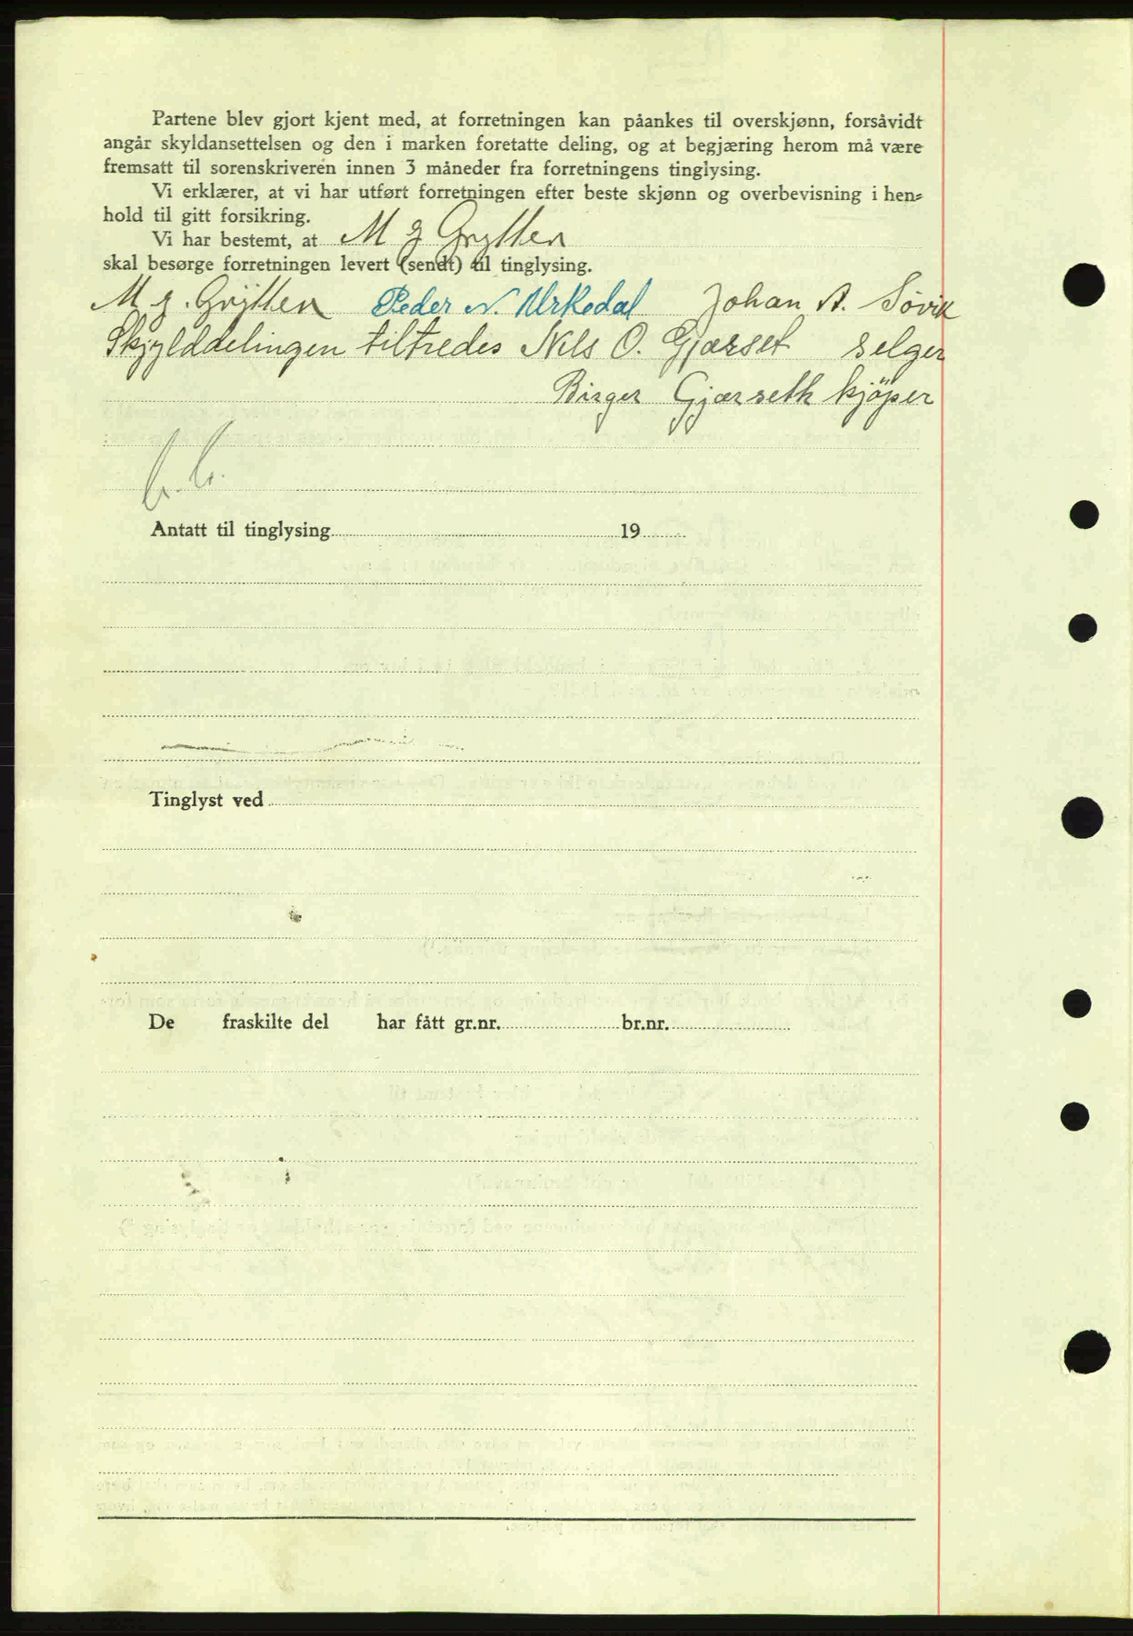 Partene blev gjort kjent med, at forretningen kan påankes til overskjønn, forsåvidt
angår skyldansettelsen og den i marken foretatte deling, og at begjæring herom må være
fremsatt til sorenskriveren innen 3 måneder fra forretningens tinglysing.
Vi erklærer, at vi har utført forretningen efter beste skjønn og overbevisning i hen-
hold til gitt forsikring.
Vi har bestemt, at M J Grytten
skal besørge forretningen levert (sendt) til tinglysing.
M J. Grytten Peder N. Urkedal Johan A. Søvik
Skjylddelingen tiltredes Nils O. Gjærset selger
Birger Gjærseth kjöper
Antatt til tinglysing 19
Tinglyst ved
De fraskilte del har fått gr.nr. br.nr.